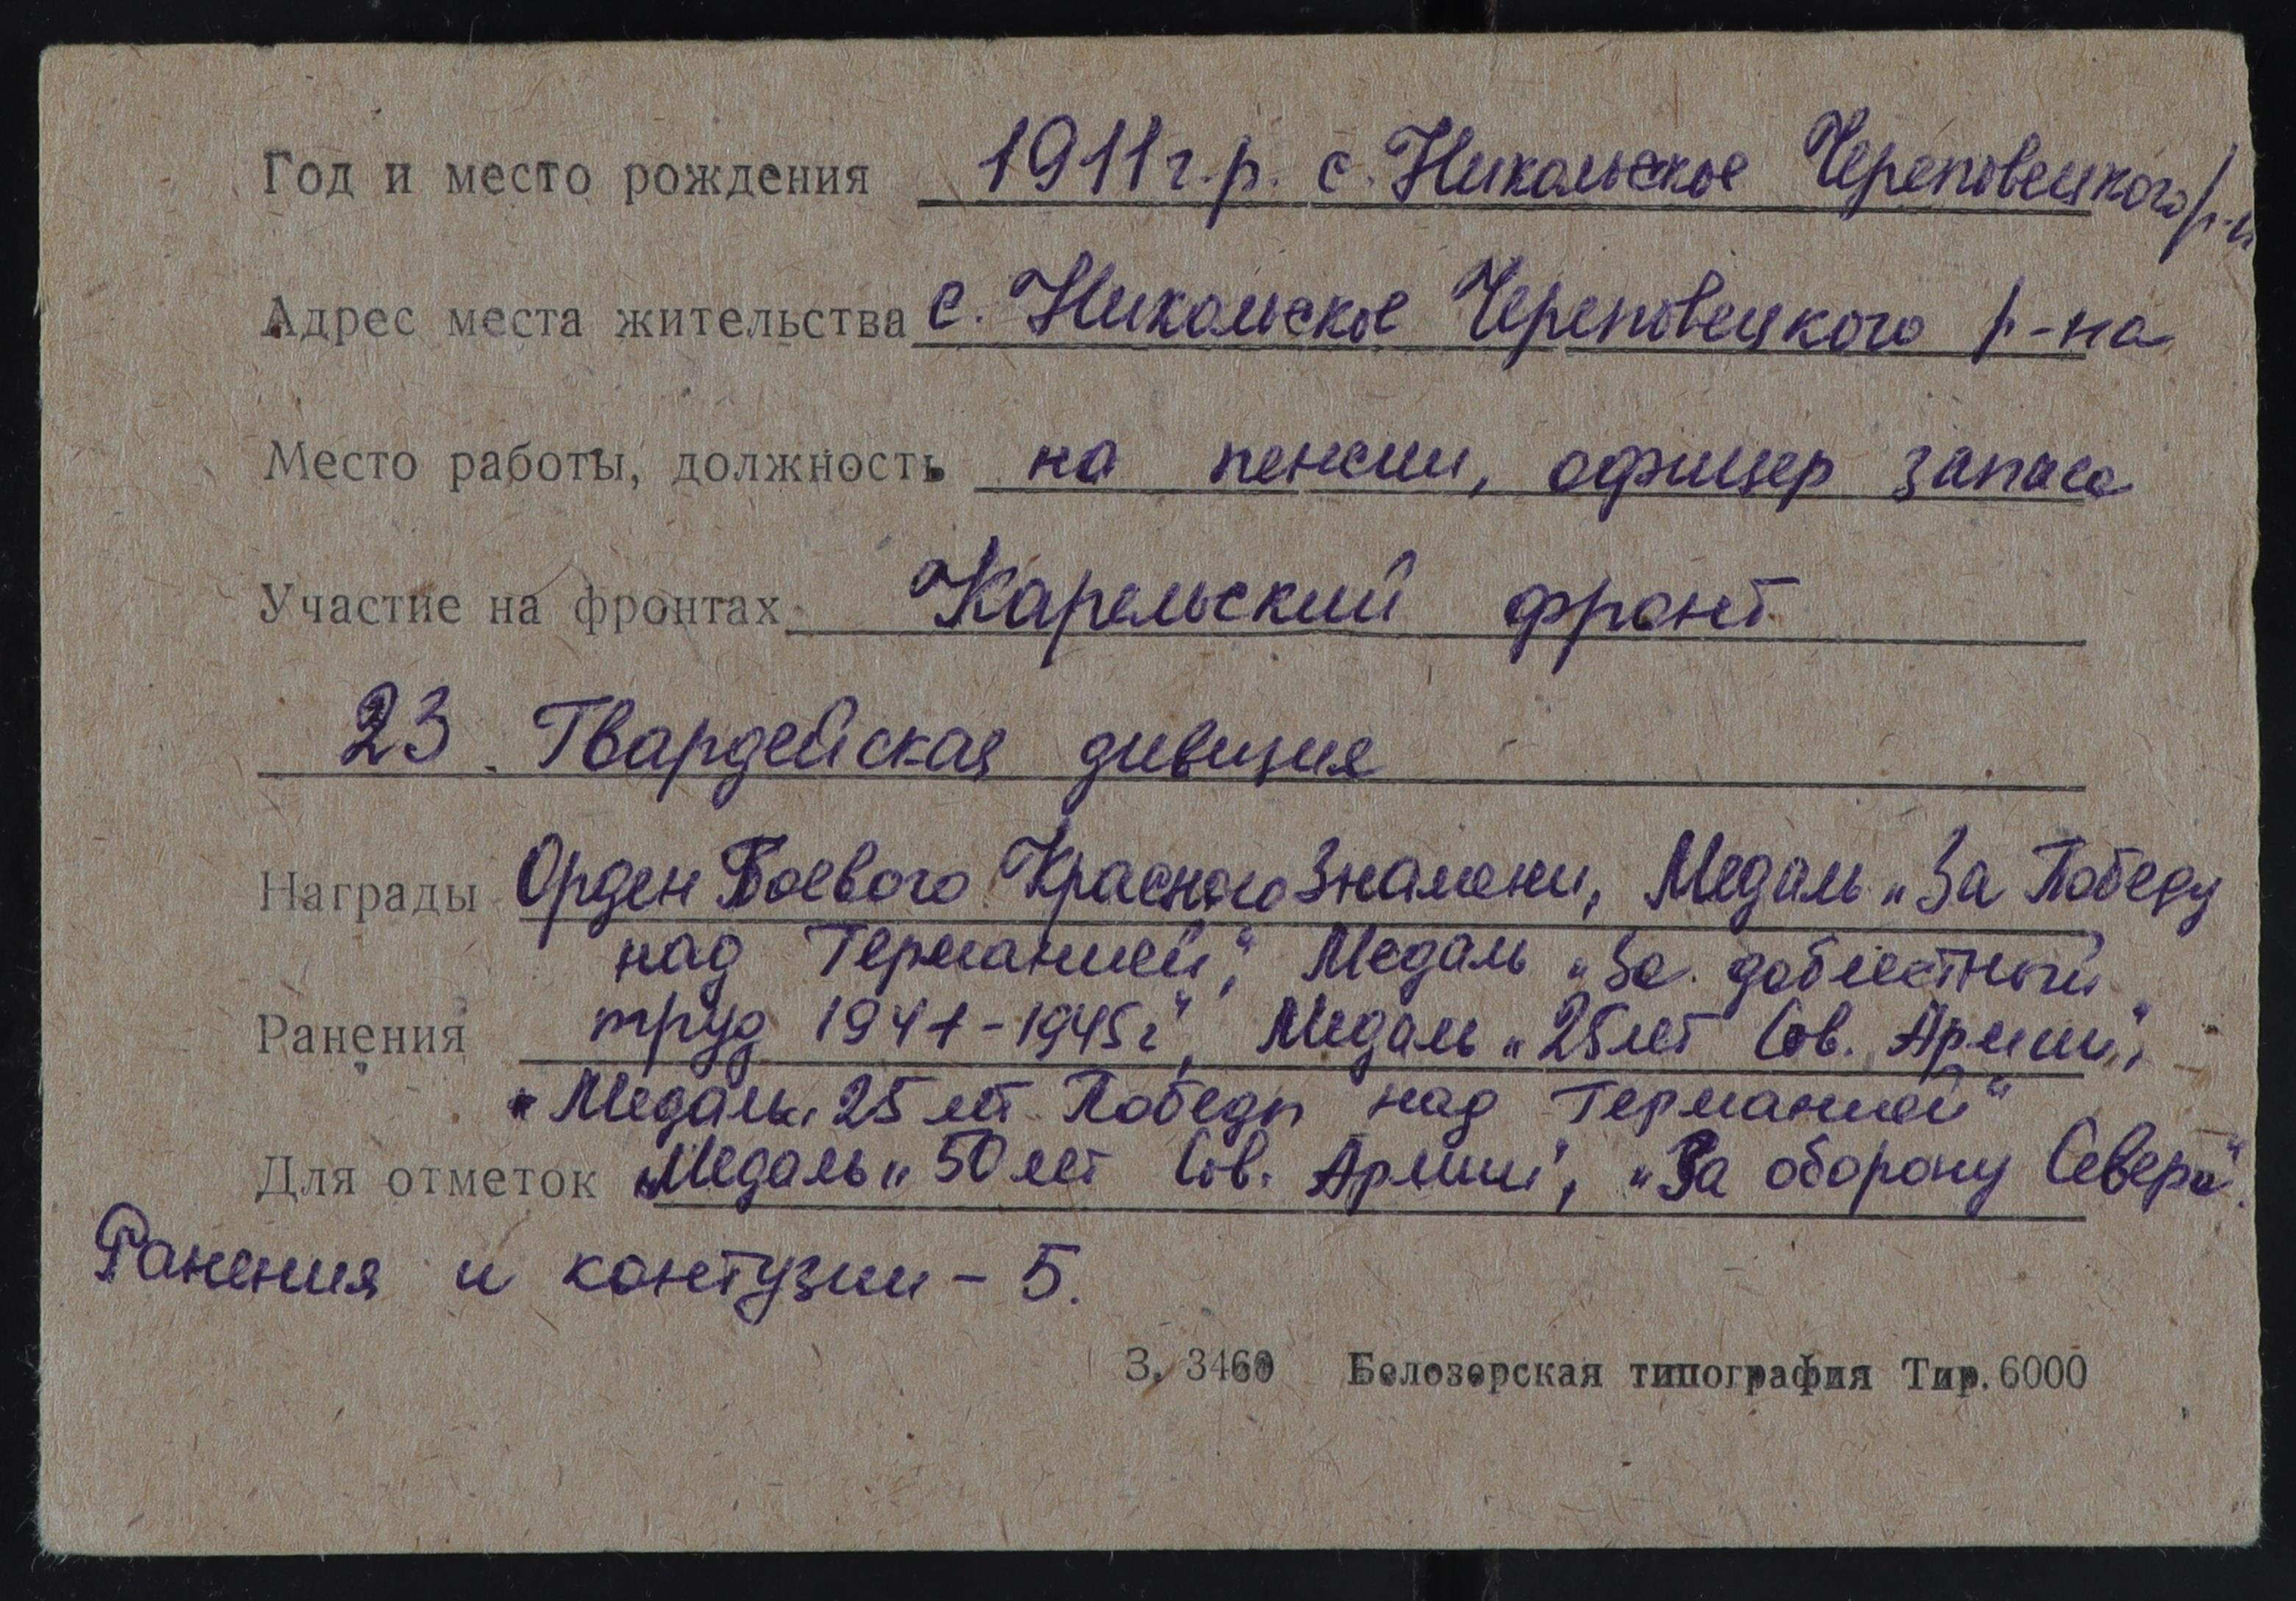 Год и место рождения 1911 г.р. с. Никольское Череповецкого р-н
Адрес места жительства с. Никольское Череповецкого р-на
Место работы, должность на пенсии, офицер запаса
Участие на фронтах Карельский фронт
23. Гвардейская дивизия
Награды Орден Боевого Красного Знамени, Медаль „За Победу
над Германией“, Медаль „За доблестный
Ранения труд 1941-1945 г“, Медаль „25 лет Сов. Армии“,
„Медаль 25 лет Победы над Германией“
Для отметок Медаль „50 лет Сов. Армии“, „За оборону Севера“.
Ранения и контузии - 5.
З. 3460 Белозерская типография Тир. 6000